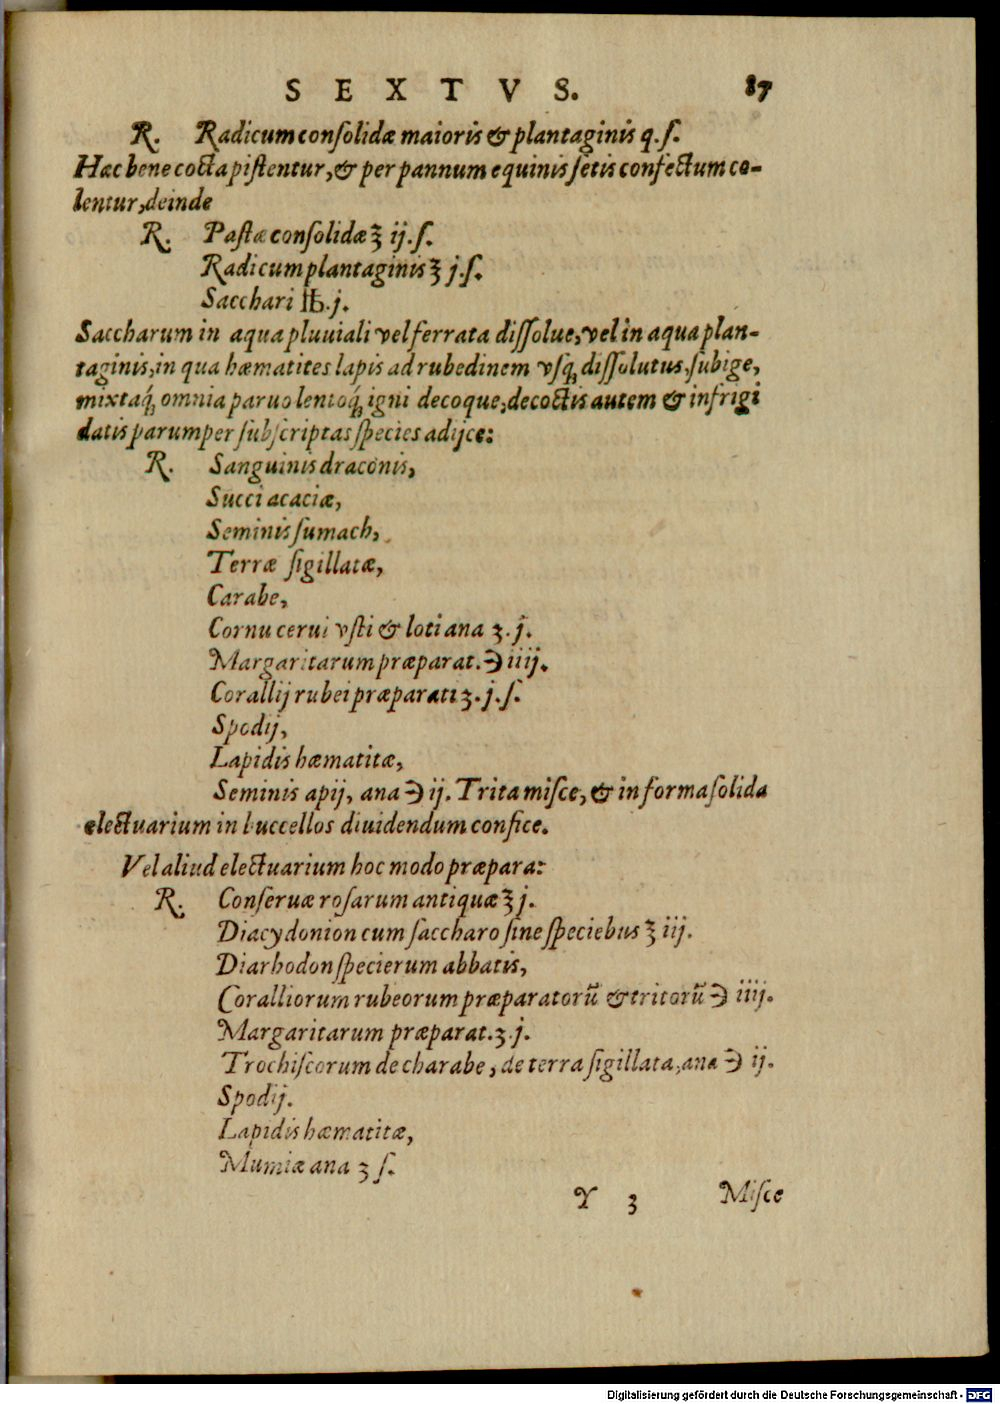 SEXTVS. 87
R. Radicum conſolidæ maioris & plantaginis q. ſ.
Hæc bene cocta piſtentur, & per pannum equinis ſetis confectum co-
lentur, deinde
R. Paſtæ conſolidæ ℥ ij. ſ.
Radicum plantaginis ℥ j. ſ.
Sacchari ℔. j.
Saccharum in aqua pluuiali vel ferrata diſſolue, vel in aqua plan-
taginis, in qua hæmatites lapis ad rubedinem vſq́; diſſolutus, ſubige,
mixtaq́; omnia paruo lentoq́; igni decoque, decoctis autem & infrigi
datis parumper ſubſcriptas ſpecies adijce:
R. Sanguinis draconis,
Succi acaciæ,
Seminis ſumach,
Terræ ſigillatæ,
Carabe,
Cornu cerui vſti & loti ana ʒ. j.
Margaritarum præparat. ℈ iiij.
Corallij rubei præparati ʒ. j. ſ.
Spodij,
Lapidis hæmatitæ,
Seminis apij, ana ℈ ij. Trita miſce, & in forma ſolida
electuarium in buccellos diuidendum confice.
Vel aliud electuarium hoc modo præpara:
R. Conſeruæ roſarum antiquæ ℥ j.
Diacydonion cum ſaccharo ſine ſpeciebus ℥ iij.
Diarhodon ſpecierum abbatis,
Coralliorum rubeorum præparatorũ & tritorũ ℈ iiij.
Margaritarum præparat. ʒ. j.
Trochiſcorum de charabe, de terra ſigillata, ana ℈ ij.
Spodij.
Lapidis hæmatitæ,
Mumiæ ana ʒ ſ.
Y 3 Miſce
Digitalisierung gefördert durch die Deutsche Forschungsgemeinschaft - DFG